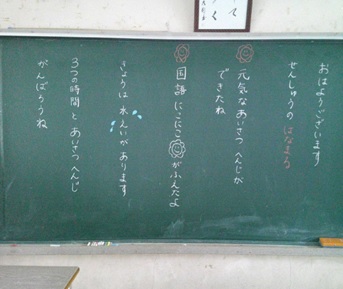 おはようございます
せんしゅうの はなまる
元気なあいさつ へんじが
できたね
国語 にこにこ がふえたよ
きょうは 水えいが あります
3つの時間と あいさつ へんじ
がんばろうね